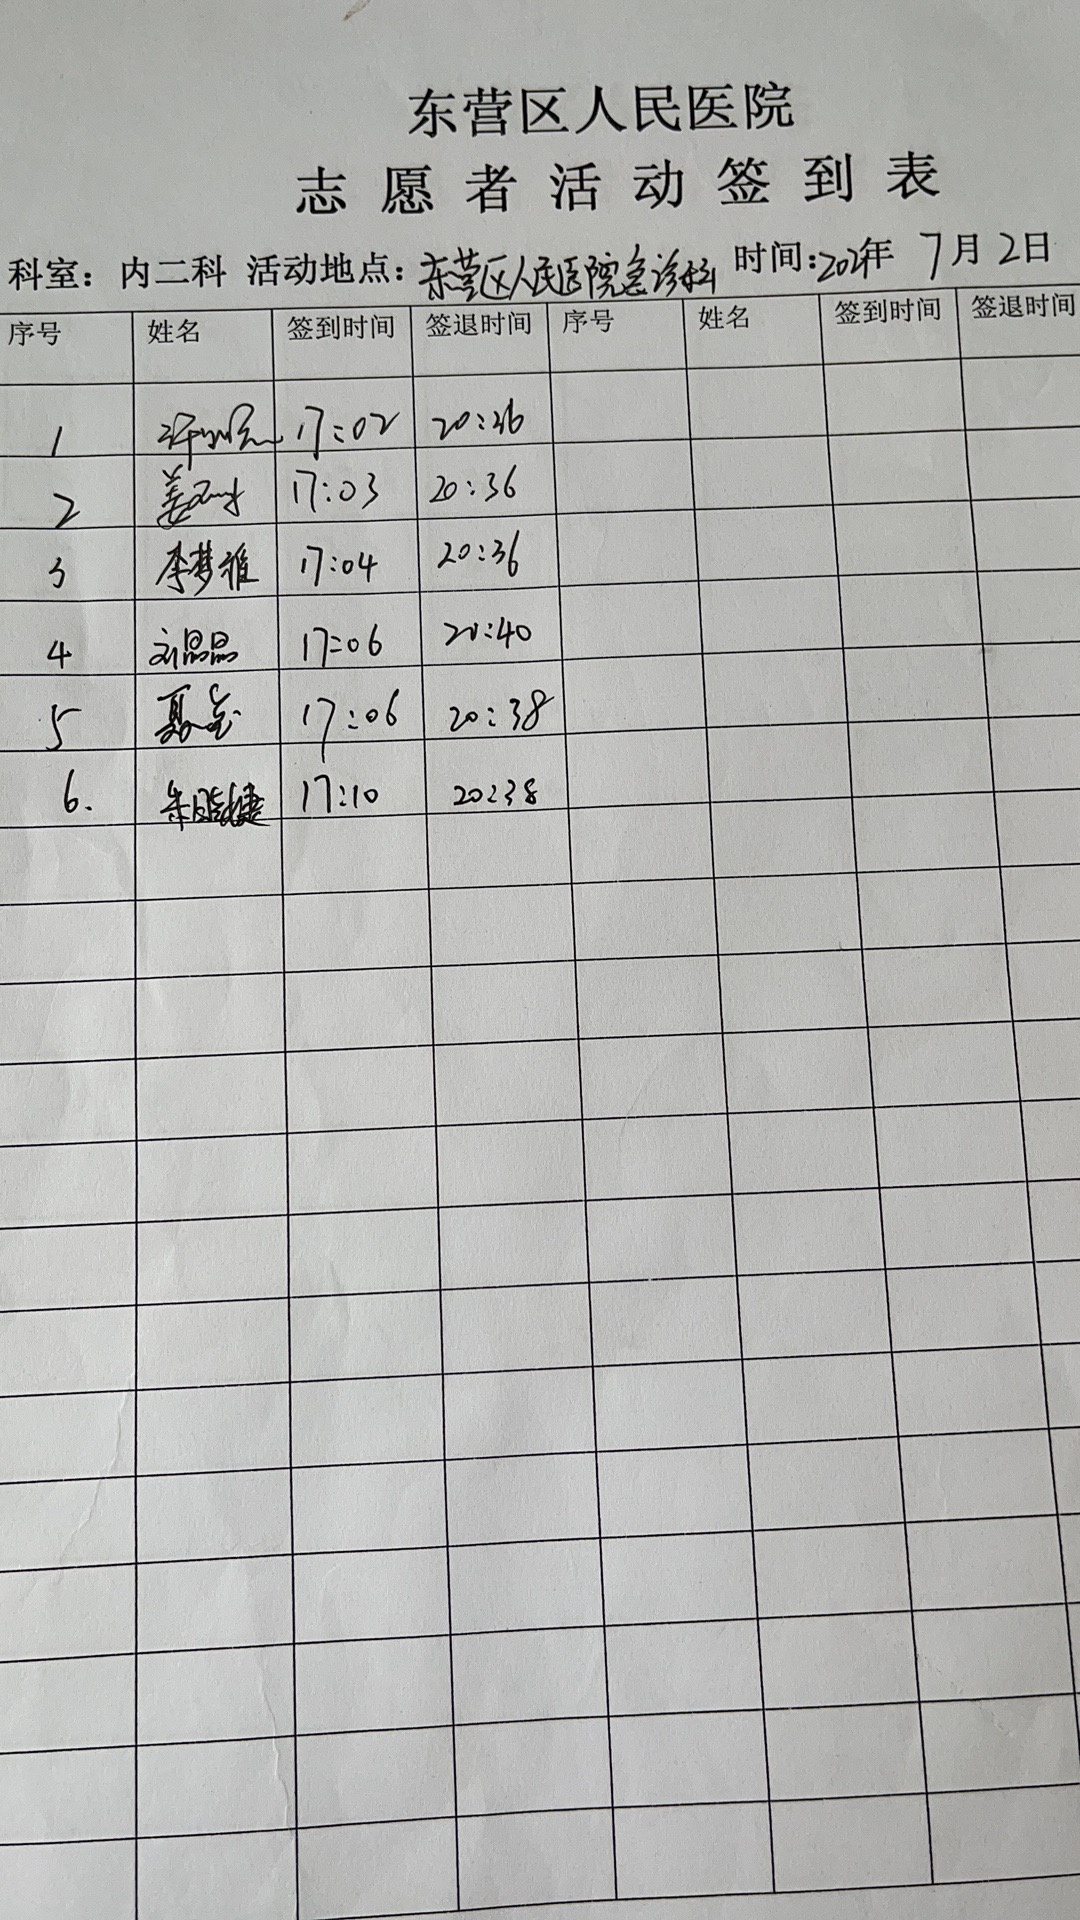 东营区人民医院
志愿者活动签到表
科室：内二科 活动地点：东营区人民医院急诊科 时间：年 7月2日
序号 姓名 签到时间 签退时间 序号 姓名 签到时间 签退时间
1 17:02 20:36
2 姜 17:03 20:36
3 李梦雅 17:04 20:36
4 刘晶晶 17:06 20:40
5 17:06 20:38
6. 朱 捷 17:10 20:38